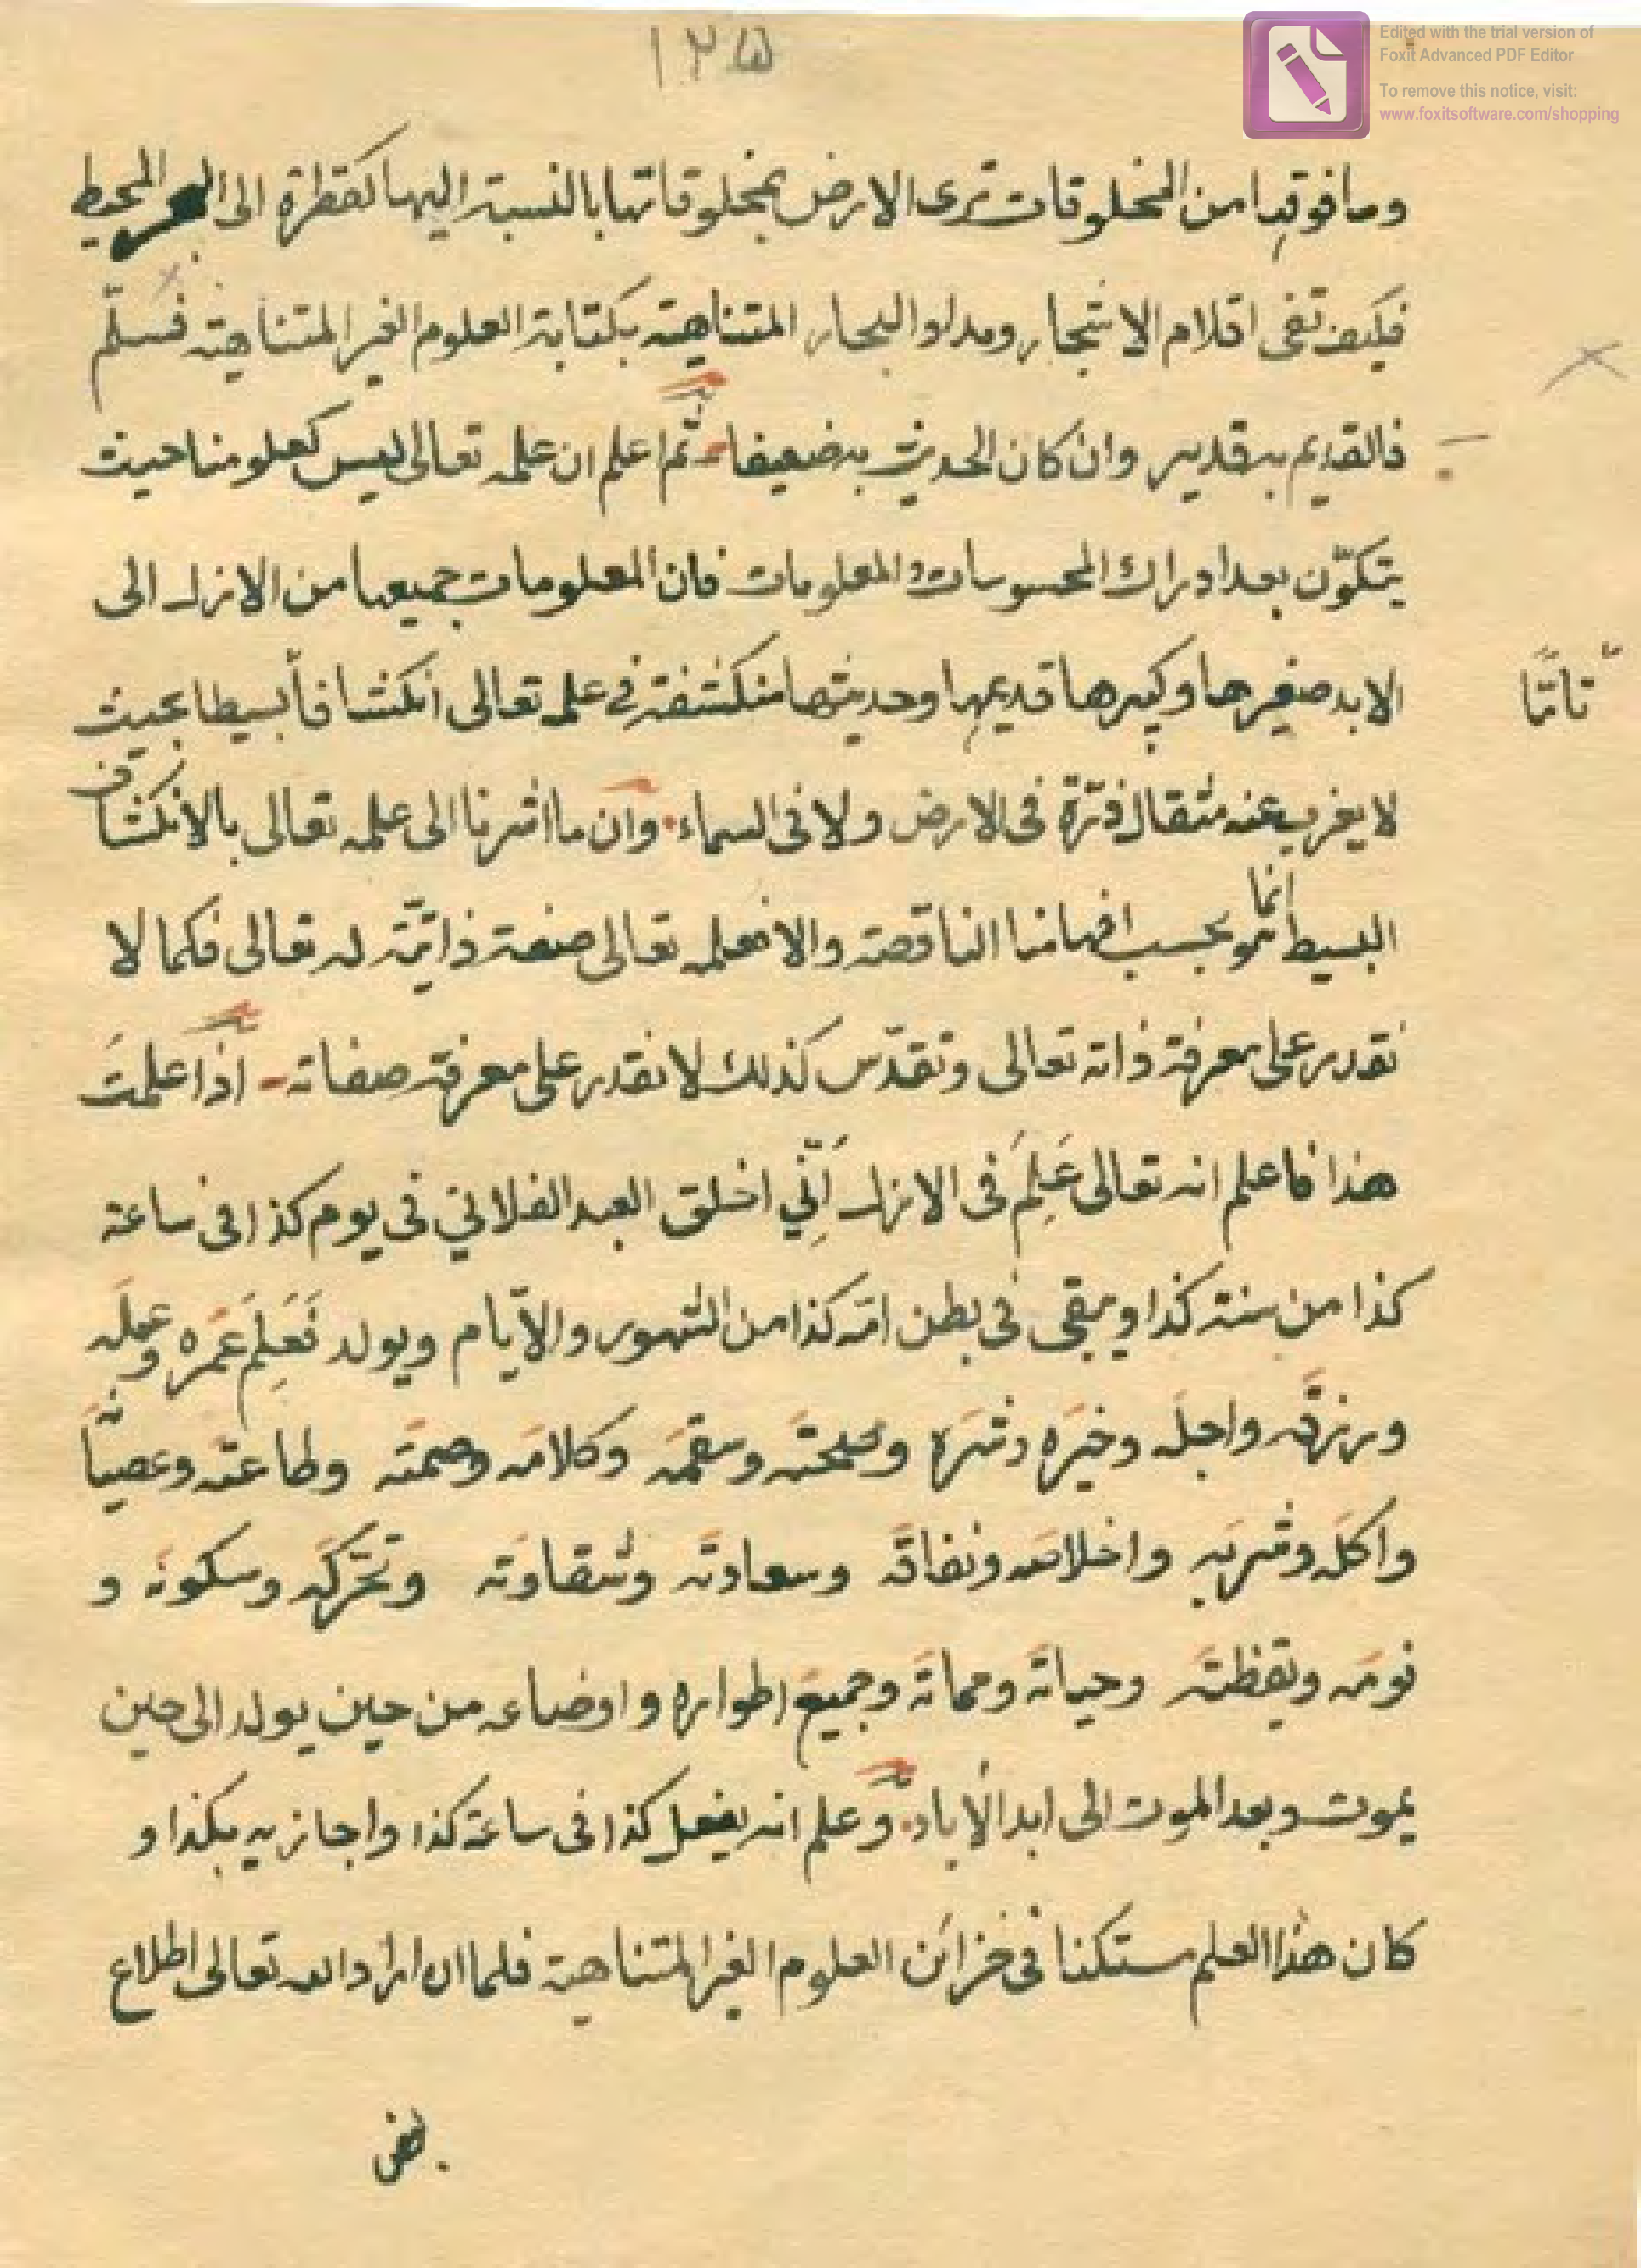 ١٢٥
Edited with the trial version of
Foxit Advanced PDF Editor
To remove this notice, visit:
www.foxitsoftware.com/shopping
وما فوقها من المخلوقات ترى الارض بمخلوقاتها بالنسبة اليها كقطرة الى البحر المحيط
فكيف تفى اقلام الاشجار ومداد البحار المتناهية بكتابة العلوم الغير المتناهية فسلّم
فالقديم به قدير وان كان الحديث به ضعيفا ثم اعلم ان علمه تعالى ليس كعلومنا حيث
يتكوّن بعد ادراك المحسوسات والمعلومات فان المعلومات جميعها من الازل الى
الابد صغيرها وكبيرها قديمها وحديثها منكشفة في علمه تعالى انكشافاً بسيطا بحيث
تامًّا
لا يغرب عنه مثقال ذرّة فى الارض ولا فى السماء وان ما اشرنا الى علمه تعالى بالانكشاف
البسيط انما هو بحسب افهامنا الناقصة والا فعلمه تعالى صفة ذاتيّة له تعالى فكما لا
نقدر على معرفة ذاته تعالى وتقدّس كذلك لا نقدر على معرفة صفاته اذا علمتَ
هذا فاعلم انه تعالى عَلِمَ فى الازل اَنِّي اخلق العبد الفلاني فى يوم كذا فى ساعة
كذا من سنة كذا ويبقى فى بطن امّه كذا من الشهور والايّام ويولد فَعَلِمَ عمَره وعملَه
ورزقَه واجلَه وخيرَه وشرَه وصحتَه وسقمَه وكلامَه وصمتَه وطاعتَه وعصيانَه
واكلَه وشربَه واخلاصَه ونفاقَه وسعادتَه وشقاوتَه وتحرّكَه وسكونَه و
نومَه ويقظتَه وحياتَه ومماتَه وجميعَ اطواره واوضاعه من حين يولد الى حين
يموت وبعد الموت الى ابد الأباد وعلم انه يفعل كذا فى ساعة كذا واجازيه بكذا و
كان هذا العلم مستكنا فى خزائن العلوم الغير المتناهية فلما ان اراد الله تعالى اطلاع